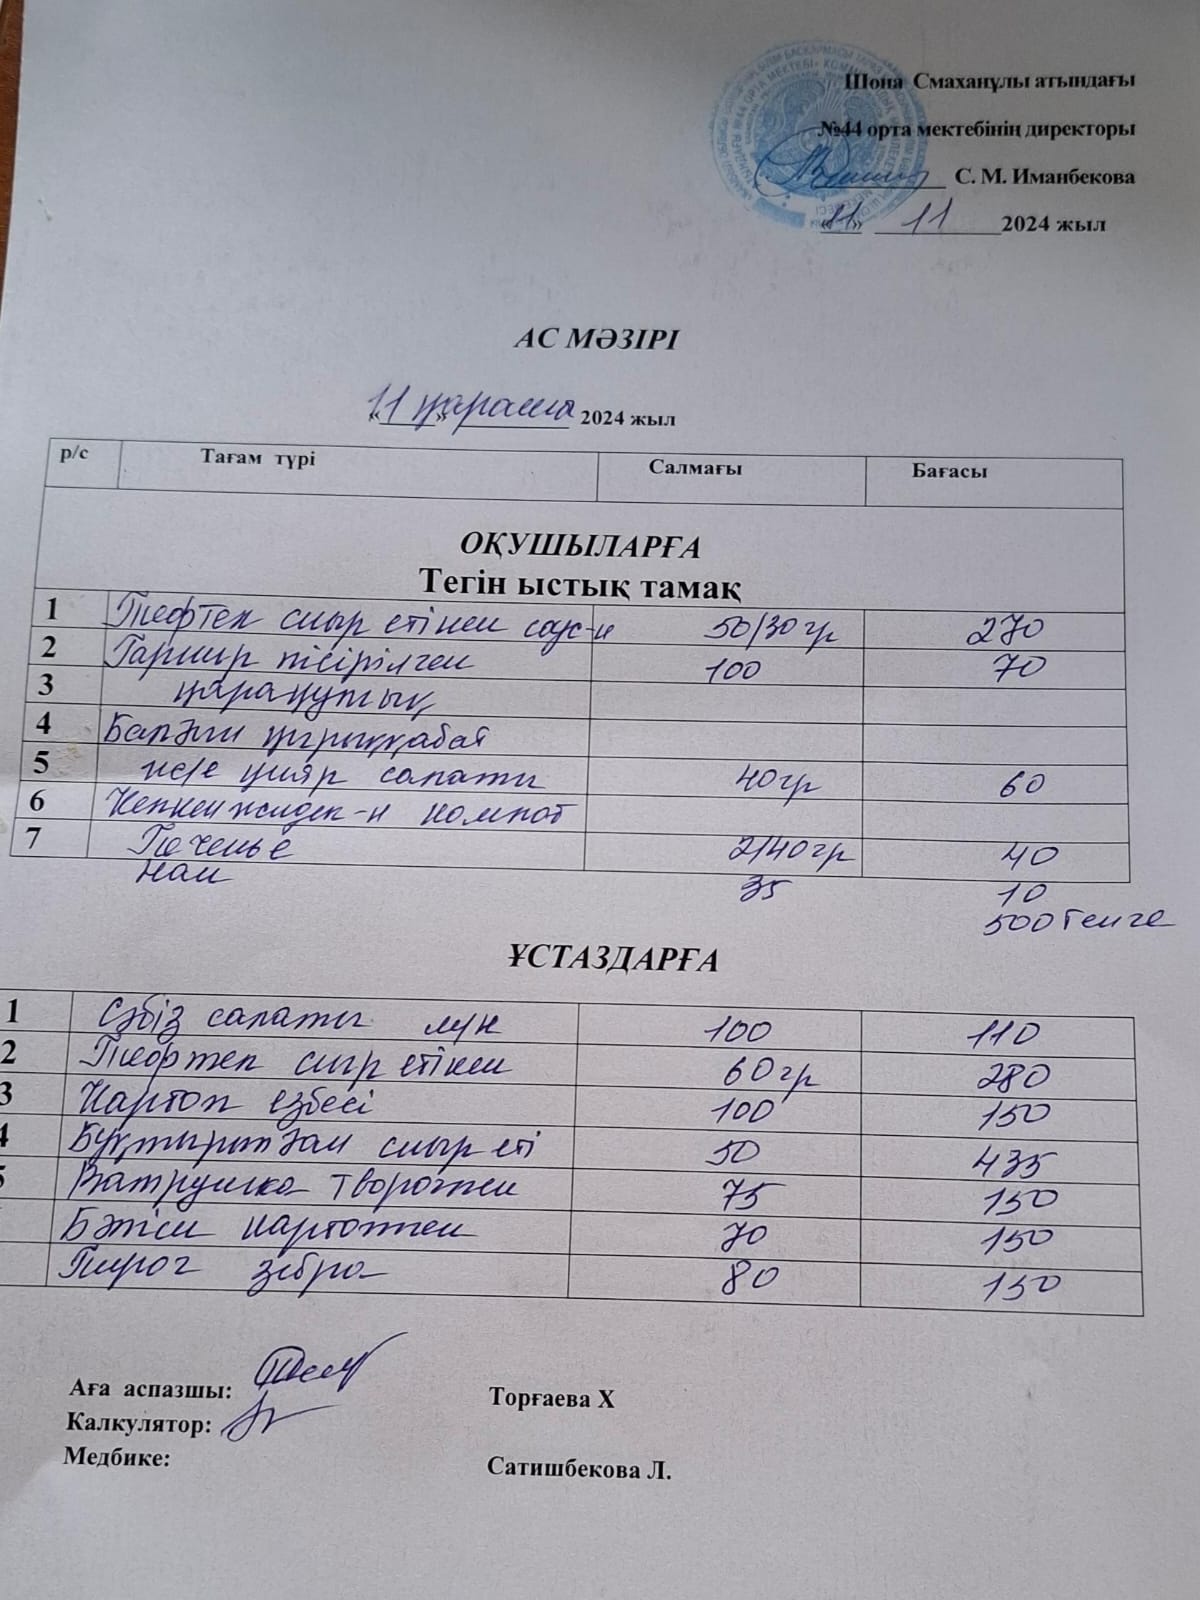 Шона Смаханұлы атындағы
№44 орта мектебінің директоры
С. М. Иманбекова
«11» 11 2024 жыл
АС МӘЗІРІ
«11» қараша 2024 жыл
р/с Тағам түрі Салмағы Бағасы
ОҚУШЫЛАРҒА
Тегін ыстық тамақ
1 Тефтел сиыр етінен соус-н 50/30 гр 270
2 Гарнир пісірілген 100 70
3 қарақұмық
4 Балғын қырыққабат
5 және қияр салаты 40 гр 60
6 Кепкен жидек-н компот
7 Печенье 2/40 гр 40
нан 35 10
500 тенге
ҰСТАЗДАРҒА
1 Сәбіз салаты лук 100 110
2 Тефтел сиыр етінен 60 гр 280
3 Картоп езбесі 100 150
4 Бұқтырылған сиыр еті 50 435
5 Ватрушка творогпен 75 150
Бәліш картоппен 70 150
Пирог зебра 80 150
Аға аспазшы: Торғаева Х
Калкулятор:
Медбике: Сатишбекова Л.